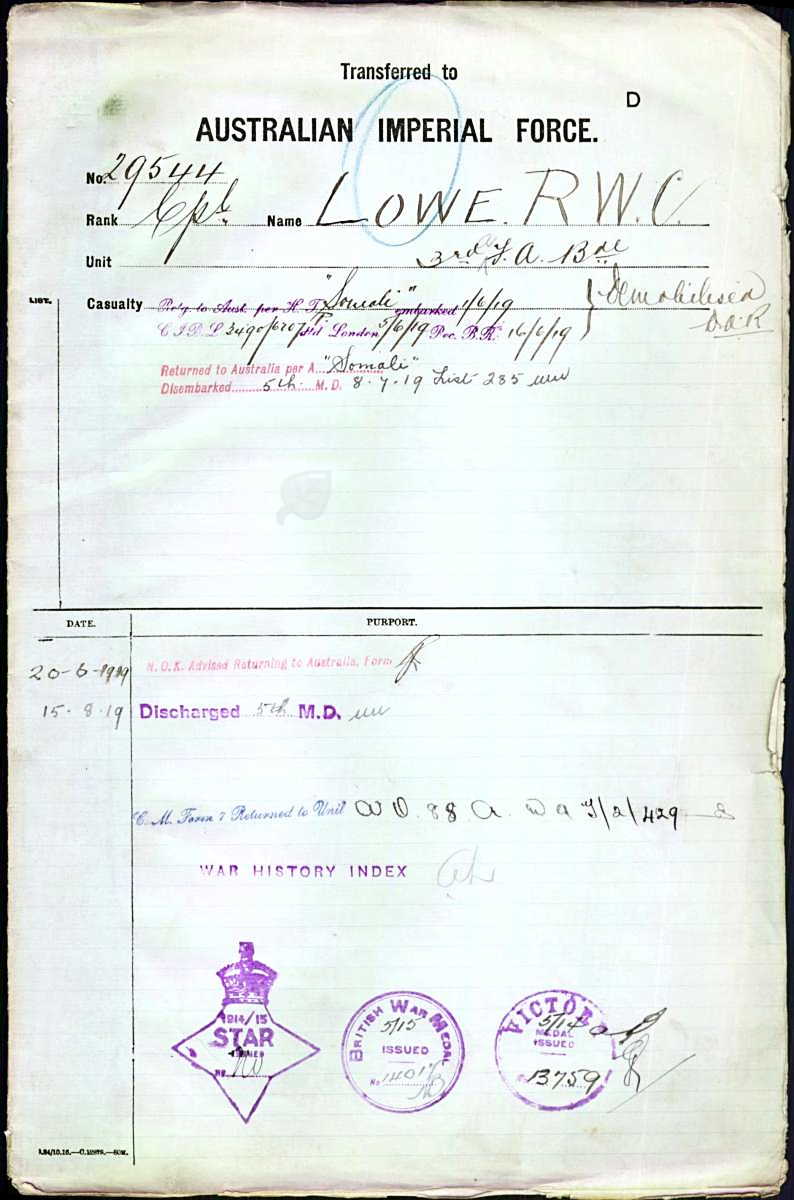 Transferred to
D
AUSTRALIAN IMPERIAL FORCE.
No. 29544
Rank Cpl. Name LOWE. R W. C.
Unit 3rd F. A. Bde
LIST.
Casualty Retg to Aust. per H. T. "Somali" embarked 1/6/19 } Demobilised
London 5/6/19 Rec. B.R. 16/6/19
Returned to Australia per A. "Somali"
Disembarked 5th M. D. 8.7.19 List 285
DATE. PURPORT.
20-6-1919 N. O. K. Advised Returning to Australia, Form
15.8.19 Discharged 5th M.D.
C. M. Form 7 Returned to Unit 88 A.
WAR HISTORY INDEX
1914/15
STAR
ISSUED
No. No
BRITISH WAR MEDAL
5/15
ISSUED
No
VICTORY
5/14
MEDAL
ISSUED
13759